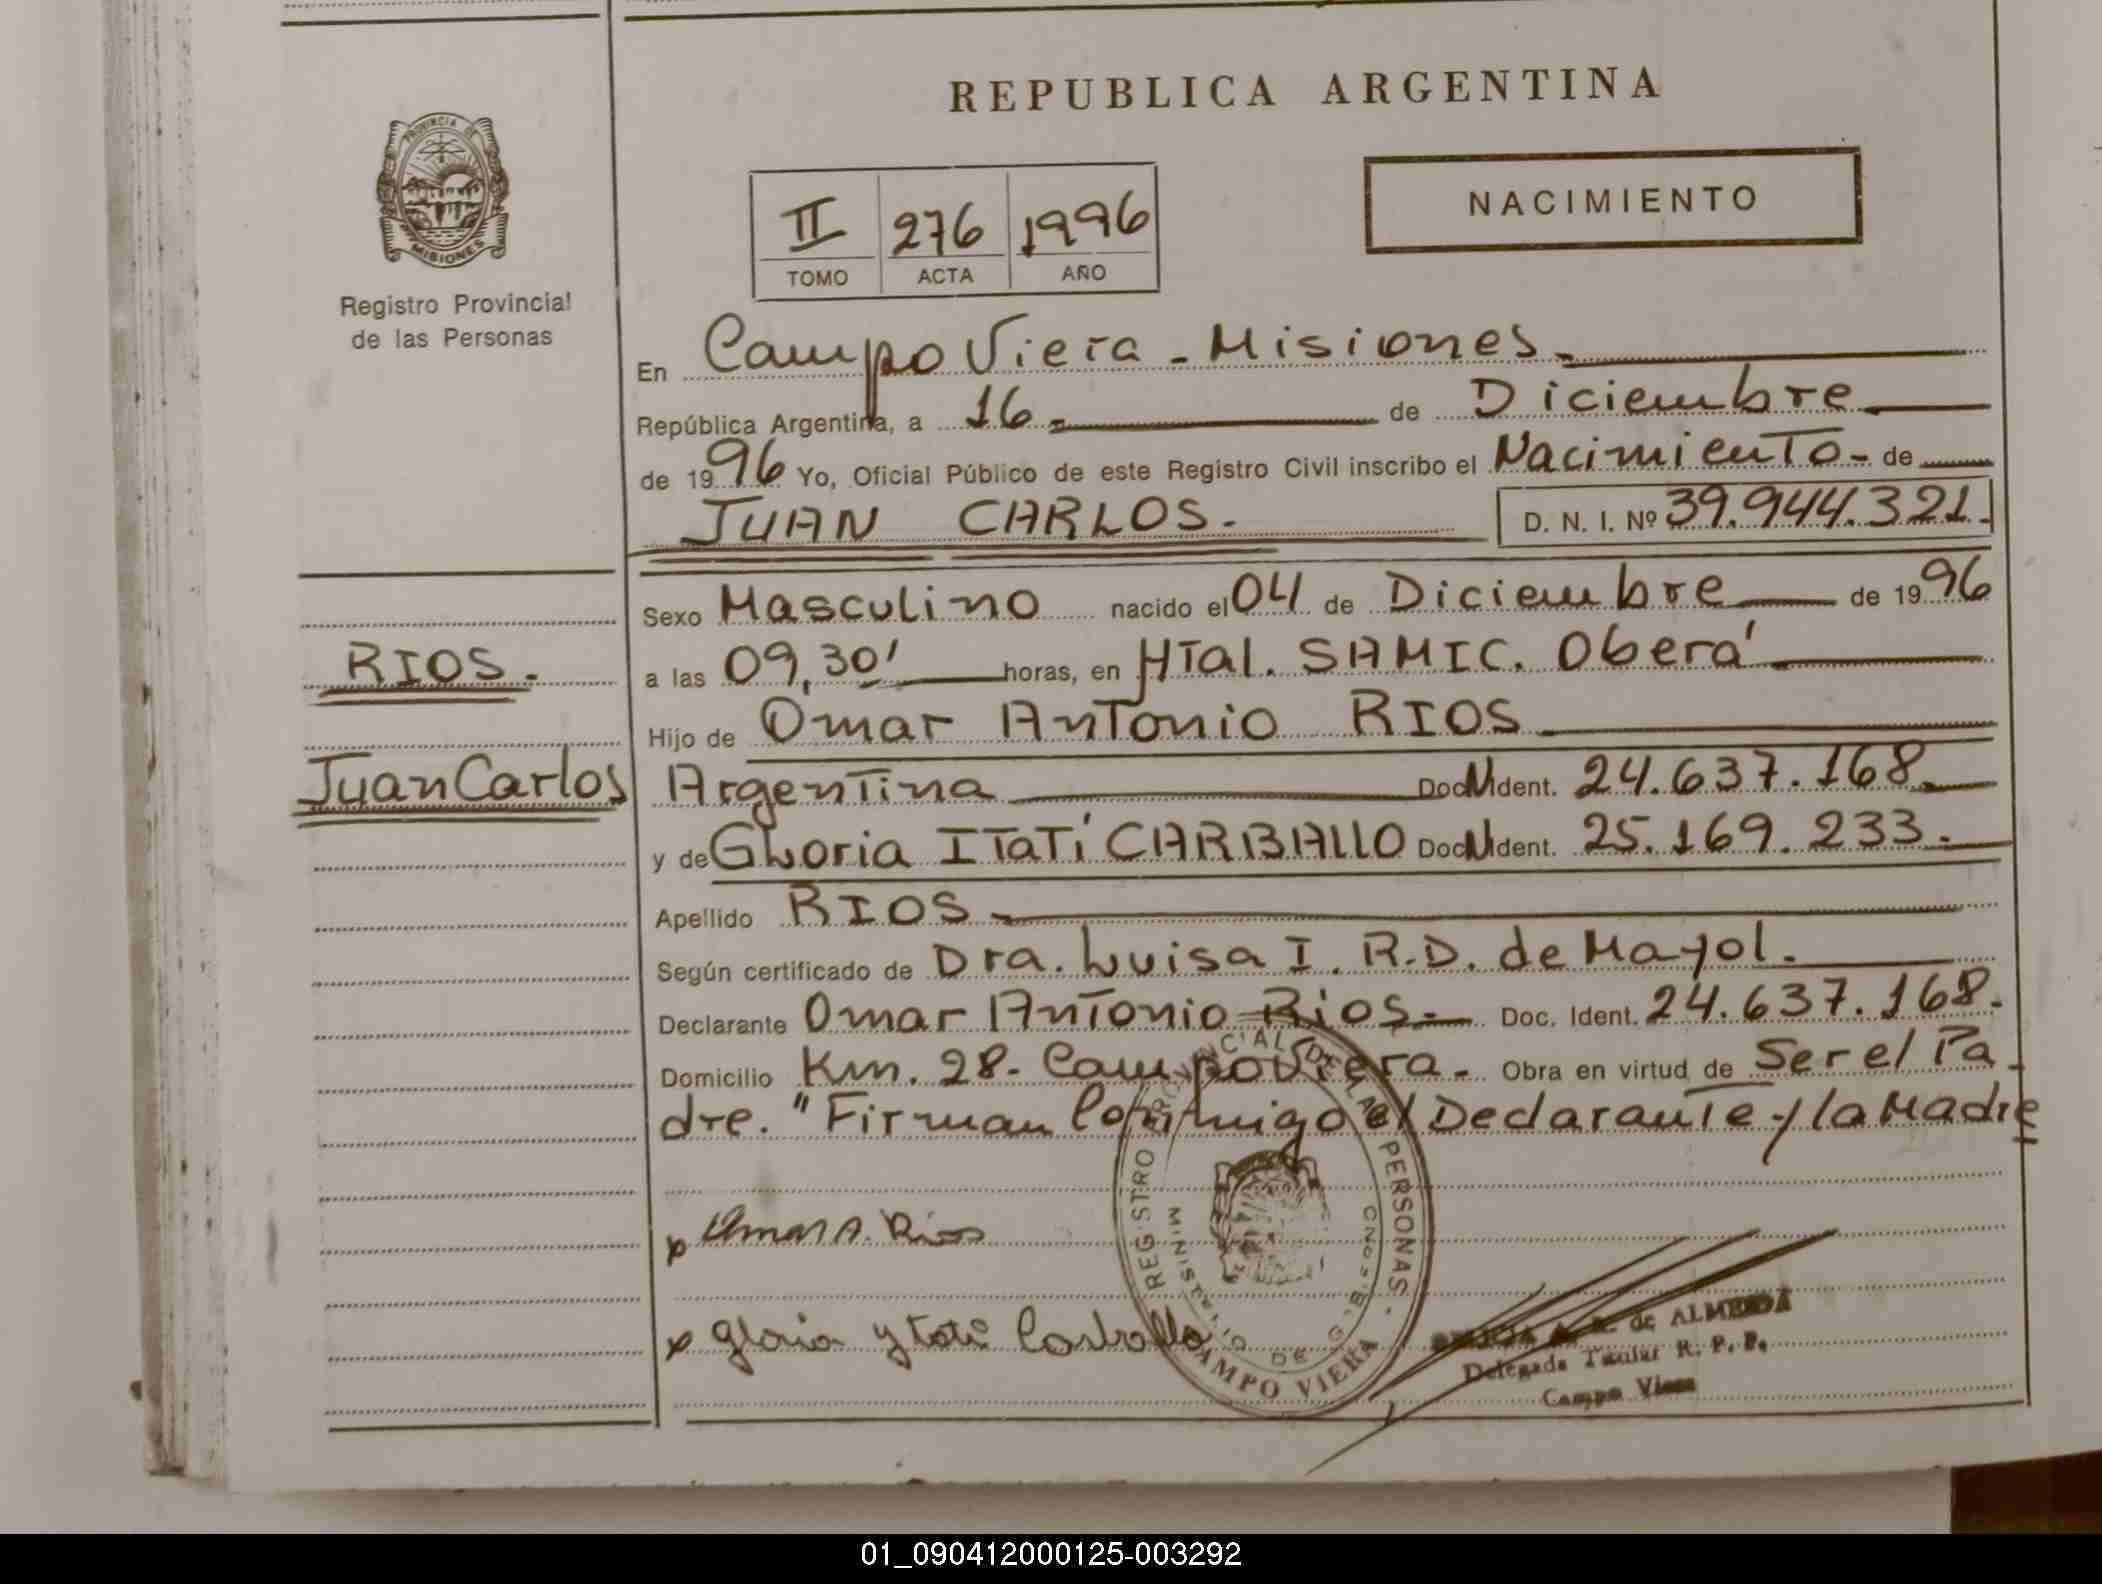 REPUBLICA ARGENTINA
PROVINCIA DE
MISIONES
Registro Provincial
de las Personas
NACIMIENTO
II 276 1996
TOMO ACTA AÑO
En Campo Viera - Misiones.
República Argentina, a 16 de Diciembre
de 1996 Yo, Oficial Público de este Registro Civil inscribo el Nacimiento - de
JUAN CARLOS. D. N. I. Nº 39.944.321.
Sexo Masculino nacido el 04 de Diciembre de 1996
RIOS.
a las 09,30' horas, en HTal. SAMIC. Oberá
Hijo de Omar Antonio RIOS
Juan Carlos
Argentina Doc. Ident. 24.637.168.
y de Gloria ITatí CARBALLO Doc. Ident. 25.169.233.
Apellido RIOS
Según certificado de Dra. Luisa I. R.D. de Mayol.
Declarante Omar Antonio Rios. Doc. Ident. 24.637.168.
Domicilio Km. 28. Campo Viera. Obra en virtud de Ser el Pa
dre. "Firman Conmigo el Declarante y la Madre
x Omar A. Rios
x Gloria ytati Carballo
REGISTRO PROVINCIAL DE LAS PERSONAS
MINISTERIO DE GOBIERNO
CAMPO VIERA
de ALMEIDA
Delegada Titular R. P. P.
Campo Viera
01_090412000125-003292